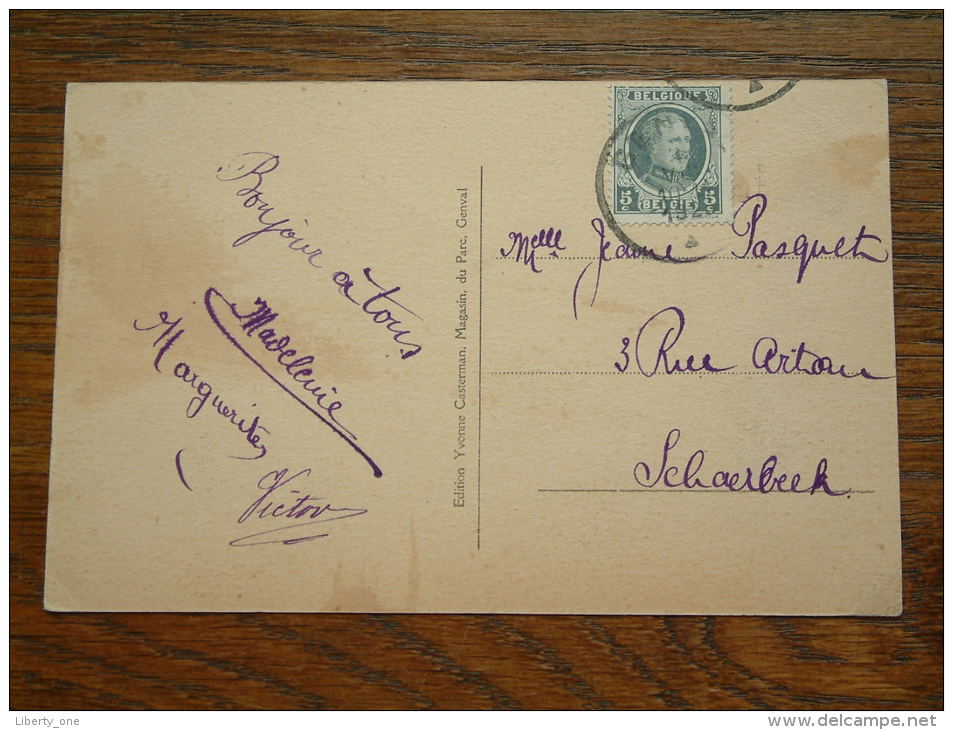 Bonjour à tous
Madeleine
Marguerite
Victor
Edition Yvonne Casterman, Magasin, du Parc, Genval
BELGIQUE
5c 5c
BELGIË
Melle Jeanne Pasquet
3 Rue Artan
Schaerbeek
Liberty_one
http://www.delcampe.net